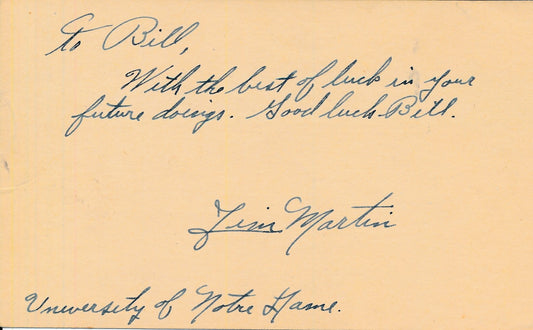 To Bill,
With the best of luck in your
future doings. Good luck Bill.
Jim Martin
University of Notre Dame.